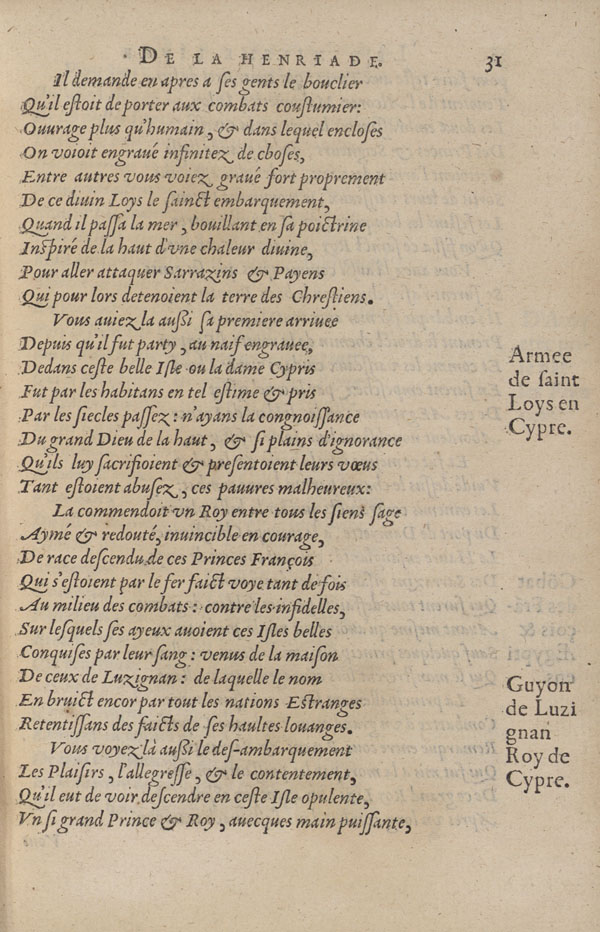 DE LA HENRIADE. 31
Il demande en apres a ses gents le bouclier
Qu'il estoit de porter aux combats coustumier:
Ouurage plus qu'humain, & dans lequel encloses
On voioit engraué infinitez de choses,
Entre autres vous voiez graué fort proprement
De ce diuin Loys le sainct embarquement,
Quand il passa la mer, bouillant en sa poictrine
Inspiré de la haut d'vne chaleur diuine,
Pour aller attaquer Sarrazins & Payens
Qui pour lors detenoient la terre des Chrestiens.
Vous auiez la aussi sa premiere arriuee
Depuis qu'il fut party, au naif engrauee,
Dedans ceste belle Isle ou la dame Cypris
Fut par les habitans en tel estime & pris
Par les siecles passez: n'ayans la congnoissance
Du grand Dieu de la haut, & si plains d'ignorance
Qu'ils luy sacrifioient & presentoient leurs vœus
Tant estoient abusez, ces pauures malheureux:
La commendoit vn Roy entre tous les siens sage
Aymé & redouté, inuincible en courage,
De race descendu de ces Princes François
Qui s'estoient par le fer faict voye tant de fois
Au milieu des combats: contre les infidelles,
Sur lesquels ses ayeux auoient ces Isles belles
Conquises par leur sang: venus de la maison
De ceux de Luzignan: de laquelle le nom
En bruict encor par tout les nations Estranges
Retentissans des faicts de ses haultes louanges.
Vous voyez là aussi le des-ambarquement
Les Plaisirs, l'allegresse, & le contentement,
Qu'il eut de voir descendre en ceste Isle opulente,
Vn si grand Prince & Roy, auecques main puissante,
Armee
de saint
Loys en
Cypre.
Guyon
de Luzi
gnan
Roy de
Cypre.